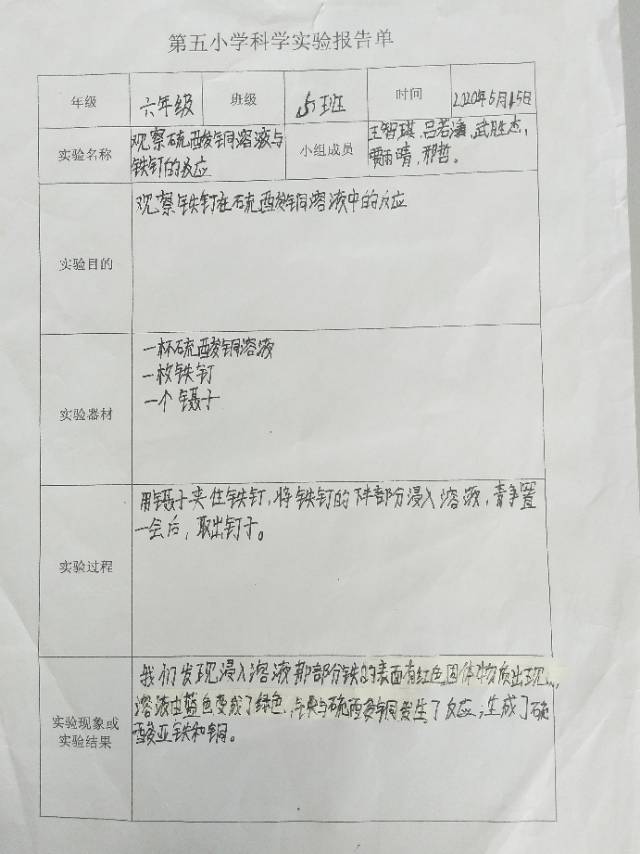 第五小学科学实验报告单
年级 六年级 班级 5班 时间 2020年5月15日
实验名称 观察硫酸铜溶液与铁钉的反应
小组成员 王智琪、吕若潇、武胜杰、贾雨晴、邢哲。
实验目的 观察铁钉在硫酸铜溶液中的反应
实验器材
一杯硫酸铜溶液
一枚铁钉
一个镊子
实验过程
用镊子夹住铁钉,将铁钉的下半部分浸入溶液,静置
一会后,取出钉子。
实验现象或
实验结果
我们发现浸入溶液那部分铁的表面有红色固体物质出现,
溶液由蓝色变成了绿色,铁与硫酸铜发生了反应,生成了硫
酸亚铁和铜。